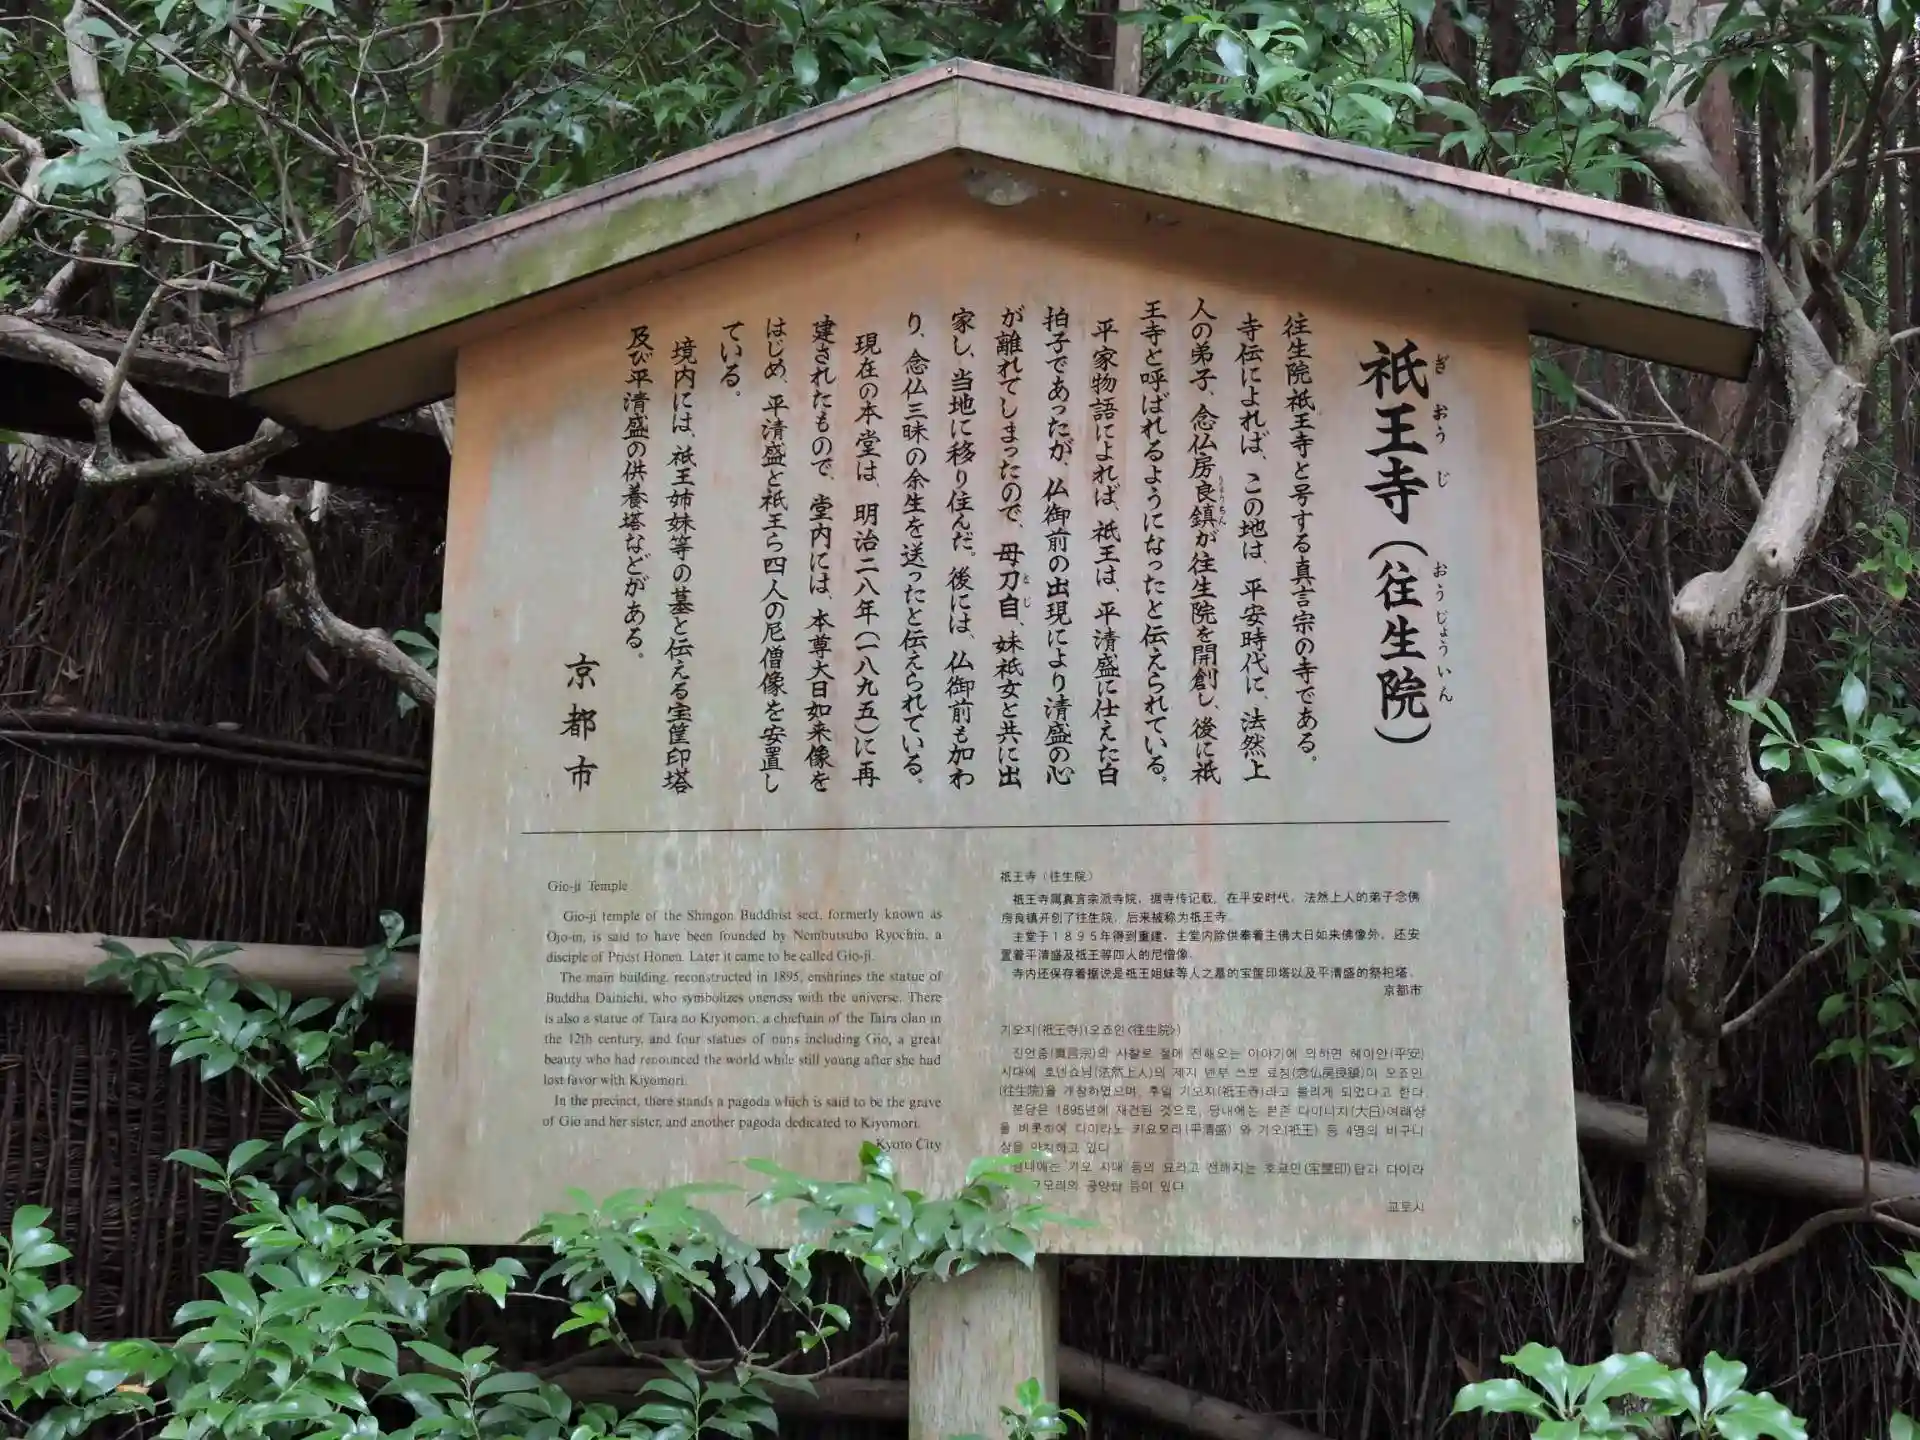 祇王寺(往生院)
ぎおうじ
おうじょういん
往生院祇王寺と号する真言宗の寺である。
寺伝によれば、この地は、平安時代に、法然上
人の弟子、念仏房良鎮が往生院を開創し、後に祇
りょうちん
王寺と呼ばれるようになったと伝えられている。
平家物語によれば、祇王は、平清盛に仕えた白
拍子であったが、仏御前の出現により清盛の心
が離れてしまったので、母刀自、妹祇女と共に出
とじ
家し、当地に移り住んだ。後には、仏御前も加わ
り、念仏三昧の余生を送ったと伝えられている。
現在の本堂は、明治二八年(一八九五)に再
建されたもので、堂内には、本尊大日如来像を
はじめ、平清盛と祇王ら四人の尼僧像を安置し
ている。
境内には、祇王姉妹等の墓と伝える宝筐印塔
及び平清盛の供養塔などがある。
京都市
Gio-ji Temple
Gio-ji temple of the Shingon Buddhist sect, formerly known as
Ojo-in, is said to have been founded by Nembutsubo Ryochin, a
disciple of Priest Honen. Later it came to be called Gio-ji.
The main building, reconstructed in 1895, enshrines the statue of
Buddha Dainichi, who symbolizes oneness with the universe. There
is also a statue of Taira no Kiyomori, a chieftain of the Taira clan in
the 12th century, and four statues of nuns including Gio, a great
beauty who had renounced the world while still young after she had
lost favor with Kiyomori.
In the precinct, there stands a pagoda which is said to be the grave
of Gio and her sister, and another pagoda dedicated to Kiyomori.
Kyoto City
祇王寺（往生院）
祇王寺属真言宗派寺院，据寺传记载，在平安时代，法然上人的弟子念佛
房良镇开创了往生院，后来被称为祇王寺．
主堂于１８９５年得到重建，主堂内除供奉着主佛大日如来佛像外，还安
置着平清盛及祇王等四人的尼僧像．
寺内还保存着据说是祇王姐妹等人之墓的宝箧印塔以及平清盛的祭祀塔．
京都市
기오지(祇王寺)(오죠인<往生院>)
진언종(眞言宗)의 사찰로 절에 전해오는 이야기에 의하면 헤이안(平安)
시대에 호넨쇼닌(法然上人)의 제자 넨부 쓰보 료칭(念仏房良鎮)이 오죠인
(往生院)을 개창하였으며, 후일 기오지(祇王寺)라고 불리게 되었다고 한다.
본당은 1895년에 재건된 것으로, 당내에는 본존 다이니치(大日)여래상
을 비롯하여 다이라노 키요모리(平清盛) 와 기오(祇王) 등 4명의 비구니
상을 안치하고 있다.
내에는 기오 자매 등의 묘라고 전해지는 호쿄인(宝筐印)탑과 다이라
모리의 공양탑 등이 있다.
교토시